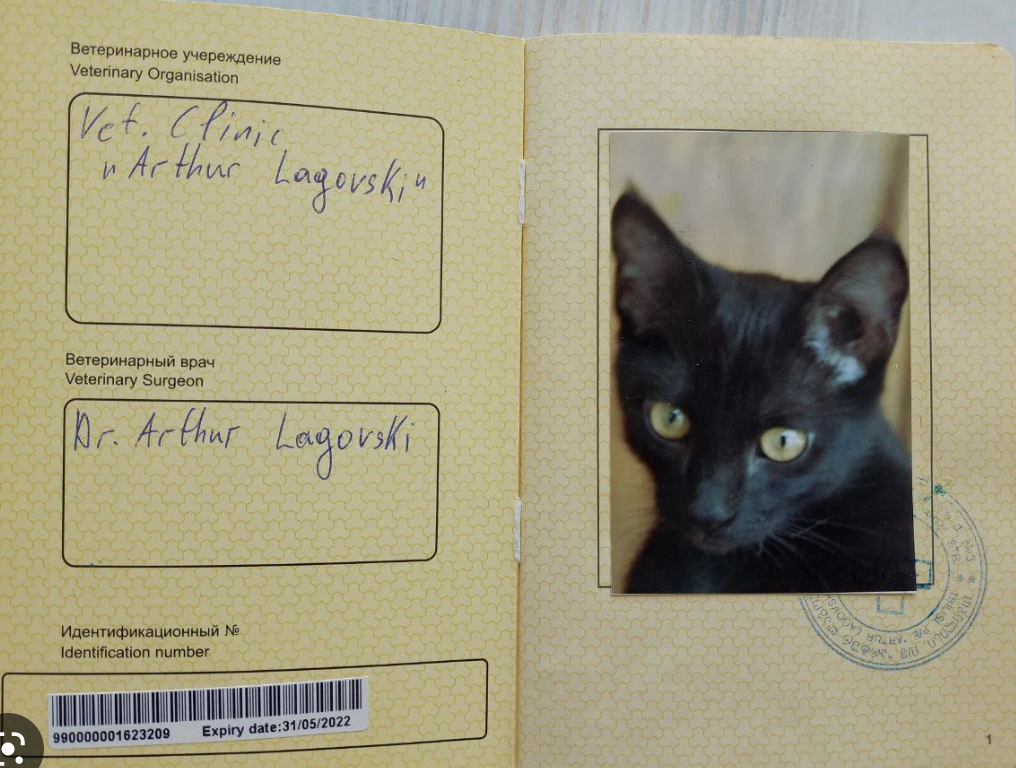 Ветеринарное учереждение
Veterinary Organisation
Vet. Clinic
"Arthur Lagovski"
Ветеринарный врач
Veterinary Surgeon
Dr. Arthur Lagovski
Идентификационный №
Identification number
990000001623209
Expiry date:31/05/2022
STR. * TBILISI P/E "ARTUR
1